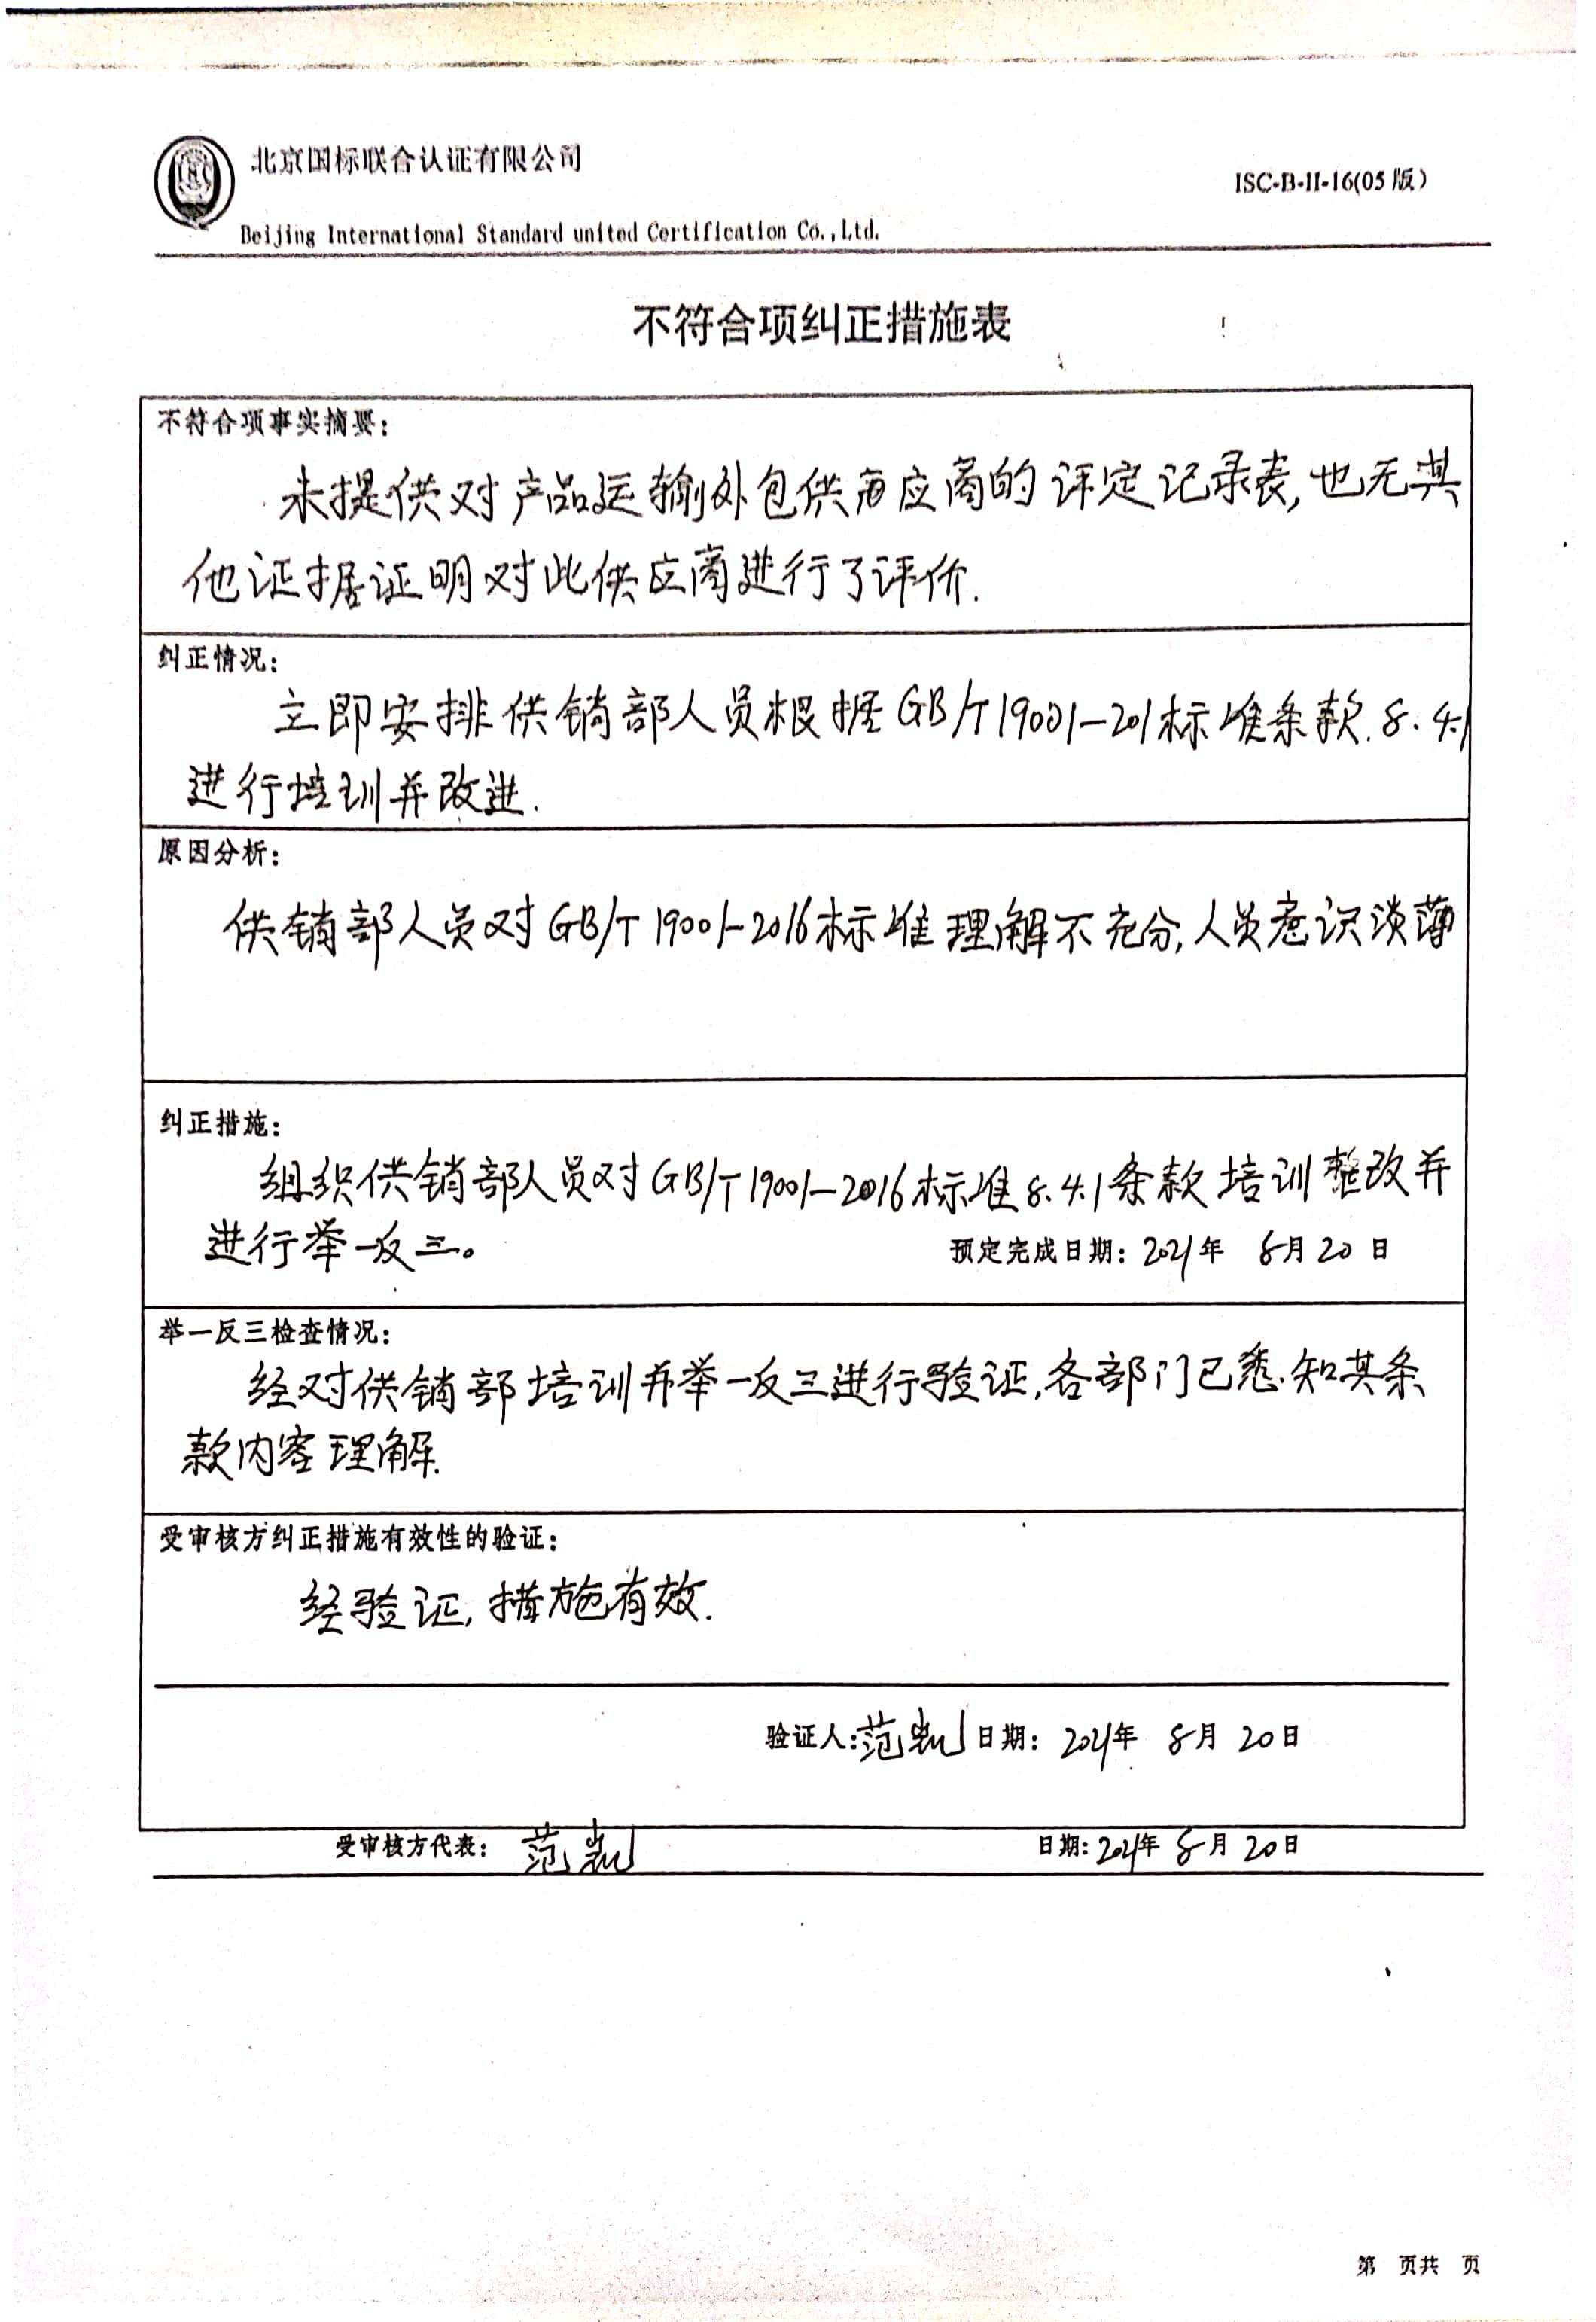 北京国标联合认证有限公司
ISC-B-II-16(05版)
Beijing International Standard united Certification Co.,Ltd.
不符合项纠正措施表
不符合项事实摘要:
未提供对产品运输外包供应商的评定记录表,也无其
他证据证明对此供应商进行了评价.
纠正情况:
立即安排供销部人员根据GB/T19001-201标准条款.8.4.1
进行培训并改进.
原因分析:
供销部人员对GB/T19001-2016标准理解不充分,人员意识淡薄
纠正措施:
组织供销部人员对GB/T19001-2016标准8.4.1条款培训整改并
进行举一反三。
预定完成日期:2021年 8月20日
举一反三检查情况:
经对供销部培训并举一反三进行验证,各部门已悉知其条
款内容理解.
受审核方纠正措施有效性的验证:
经验证,措施有效.
验证人:范凯 日期: 2021年 8月 20日
受审核方代表: 范凯 日期:2021年 8月 20日
第 页共 页